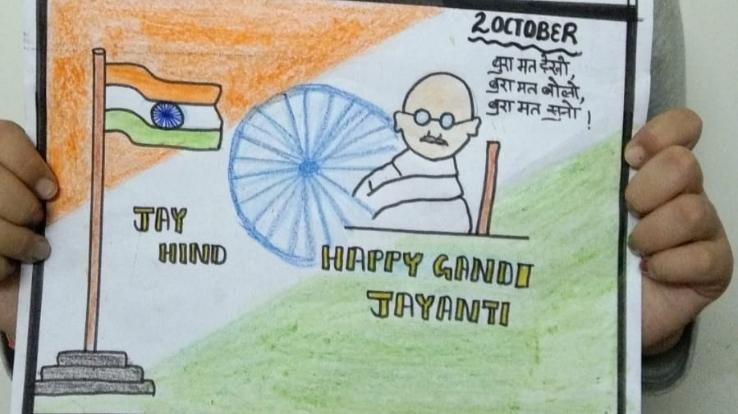 2 OCTOBER
बुरा मत देखो,
बुरा मत बोलो,
बुरा मत सुनो !
JAY
HIND
HAPPY GANDI
JAYANTI